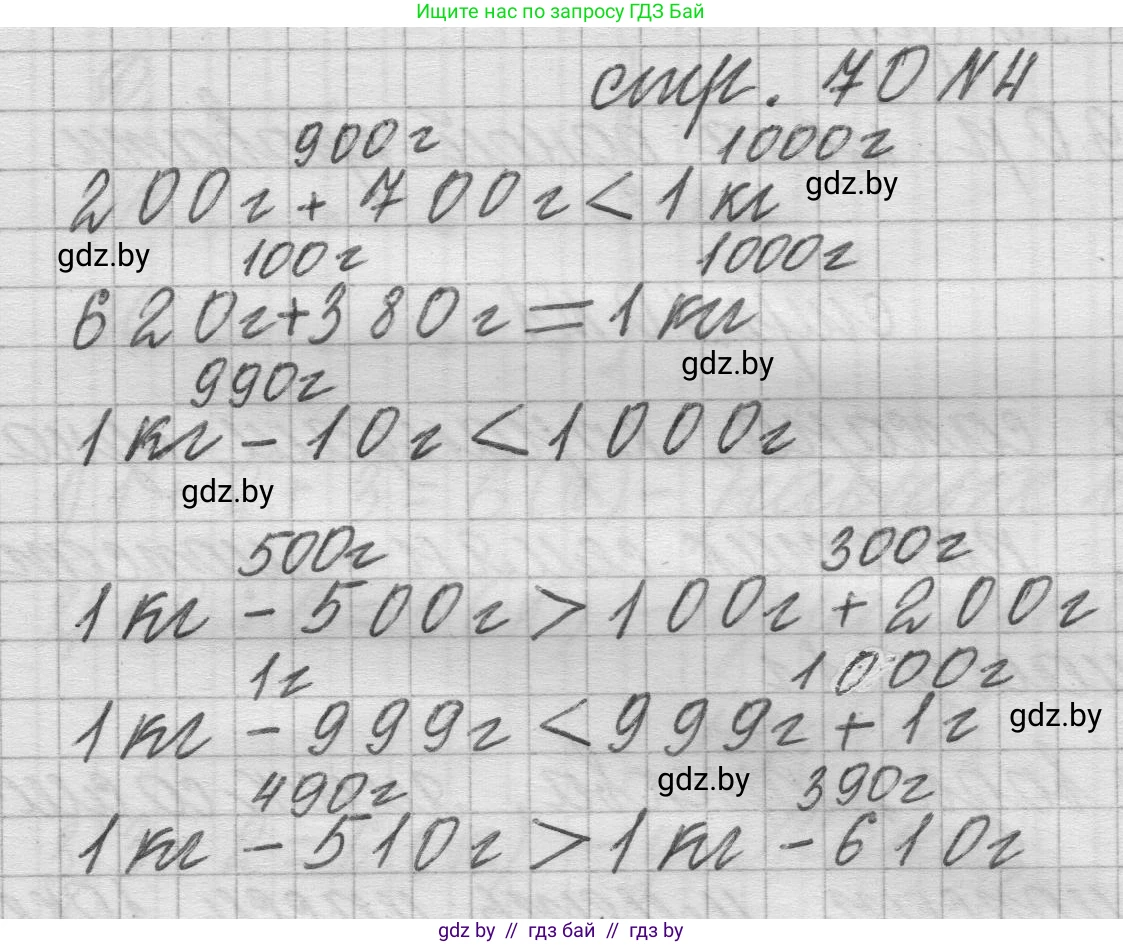 Ищите нас по запросу ГДЗ Бай
стр. 70 N4
900г 1000г
200г + 700г < 1 кг gdz.by
gdz.by 100г 1000г
620г + 380г = 1 кг
990г gdz.by
1 кг - 10г < 1000г
gdz.by
500г 300г
1 кг - 500г > 100г + 200г
1г 1000г
1 кг - 999г < 999г + 1г gdz.by
490г gdz.by 390г
1 кг - 510г > 1 кг - 610г
gdz by // гдз бай // гдз by